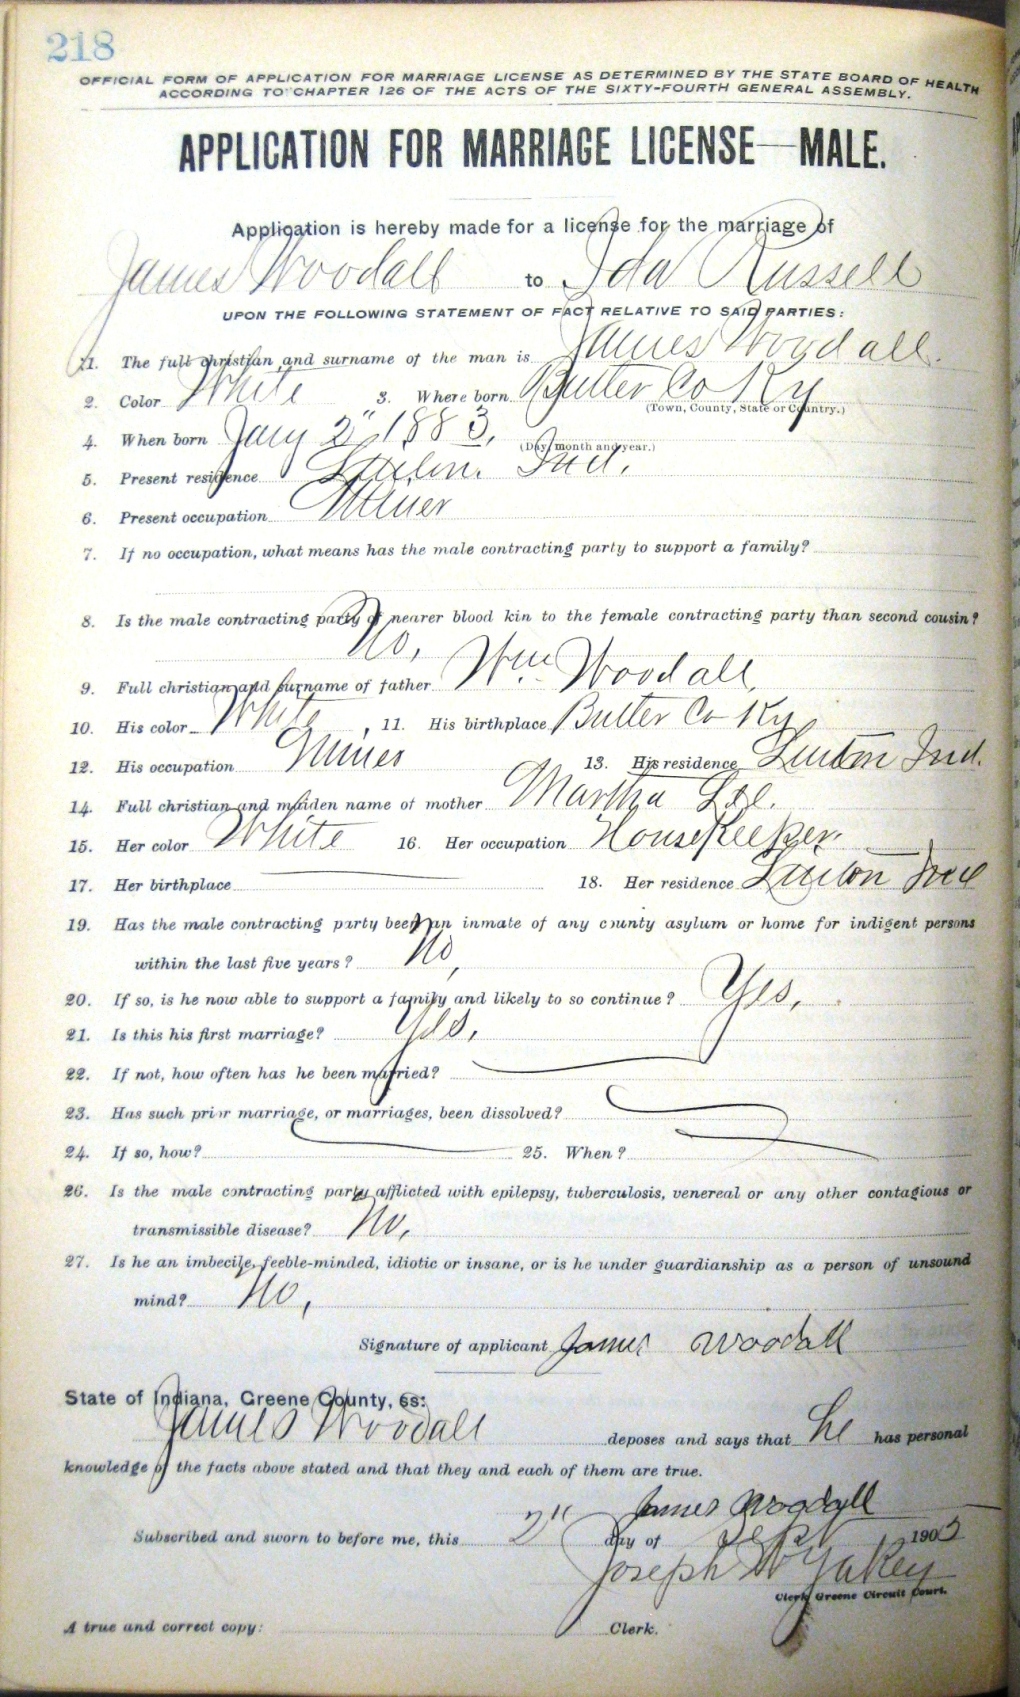 218
OFFICIAL FORM OF APPLICATION FOR MARRIAGE LICENSE AS DETERMINED BY THE STATE BOARD OF HEALTH
ACCORDING TO CHAPTER 126 OF THE ACTS OF THE SIXTY-FOURTH GENERAL ASSEMBLY.
APPLICATION FOR MARRIAGE LICENSE—MALE.
Application is hereby made for a license for the marriage of
James Woodall to Ida Russell
UPON THE FOLLOWING STATEMENT OF FACT RELATIVE TO SAID PARTIES:
1. The full christian and surname of the man is James Woodall.
2. Color White 3. Where born Butler Co Ky
(Town, County, State or Country.)
4. When born Jany 2" 1883,
(Day, month and year.)
5. Present residence Linton Ind.
6. Present occupation Miner
7. If no occupation, what means has the male contracting party to support a family?
8. Is the male contracting party of nearer blood kin to the female contracting party than second cousin?
No,
9. Full christian and surname of father Wm Woodall,
10. His color White, 11. His birthplace Butler Co Ky,
12. His occupation Miner 13. His residence Linton Ind.
14. Full christian and maiden name of mother Martha Lee.
15. Her color White 16. Her occupation Housekeeper.
17. Her birthplace 18. Her residence Linton Ind
19. Has the male contracting party been an inmate of any county asylum or home for indigent persons
within the last five years? No,
20. If so, is he now able to support a family and likely to so continue? Yes,
21. Is this his first marriage? Yes,
22. If not, how often has he been married?
23. Has such prior marriage, or marriages, been dissolved?
24. If so, how? 25. When?
26. Is the male contracting party afflicted with epilepsy, tuberculosis, venereal or any other contagious or
transmissible disease? No,
27. Is he an imbecile, feeble-minded, idiotic or insane, or is he under guardianship as a person of unsound
mind? No,
Signature of applicant James Woodall
State of Indiana, Greene County, ss:
James Woodall deposes and says that he has personal
knowledge of the facts above stated and that they and each of them are true.
James Woodall
Subscribed and sworn to before me, this 2" day of Sept 1905
Joseph W Yakey
Clerk Greene Circuit Court.
A true and correct copy: Clerk.